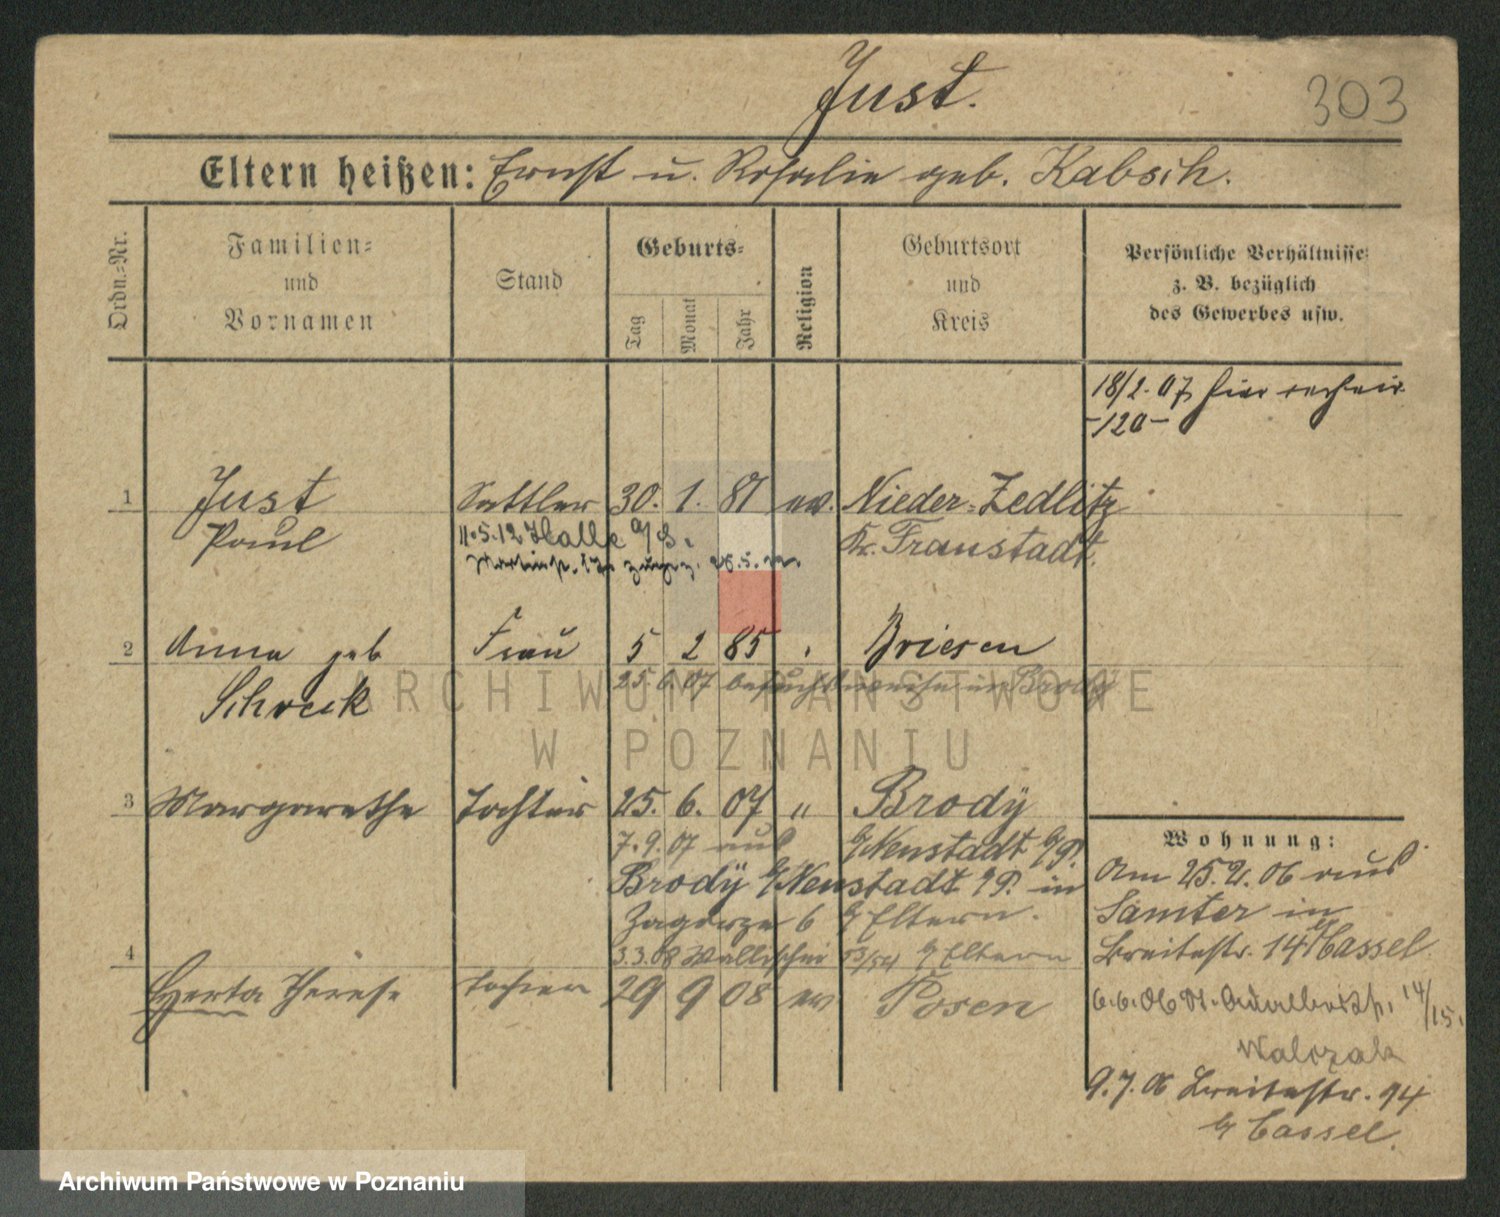 Just.
303
Eltern heißen: Ernst u. Rosalie geb. Kabsch.
Ordn.-Nr.
Familien- und Vornamen
Stand
Geburts-
Tag
Monat
Jahr
Religion
Geburtsort und Kreis
Persönliche Verhältnisse z. B. bezüglich des Gewerbes usw.
18/2. 07 hier
-120-
1 Just Sattler 30. 1. 81 ev. Nieder-Zedlitz
Paul 11.5.12 Halle a/S. Kr. Fraustadt.
2 Anna geb Frau 5 2 85 Briesen
Schreck 25 6 07 besuchsweise in Brody
3 Margarethe Tochter 25. 6. 07 " Brody
7.9.07 aus b/Neustadt b/P.
Brody b/Neustadt b/P. in
Zagorze 6 b/ Eltern.
3.3.08 Wallischei 53/54 b/ Eltern
4 Herta Therese Tochter 29 9 08 ev Posen
Wohnung:
Am 25.2.06 aus
Samter in
Breitestr. 14 b/Cassel.
6.6.06 St. Adalbertstr. 14/15.
Walczak
9.7.06 Breitestr. 94
b/ Cassel.
ARCHIWUM PAŃSTWOWE
W POZNANIU
Archiwum Państwowe w Poznaniu